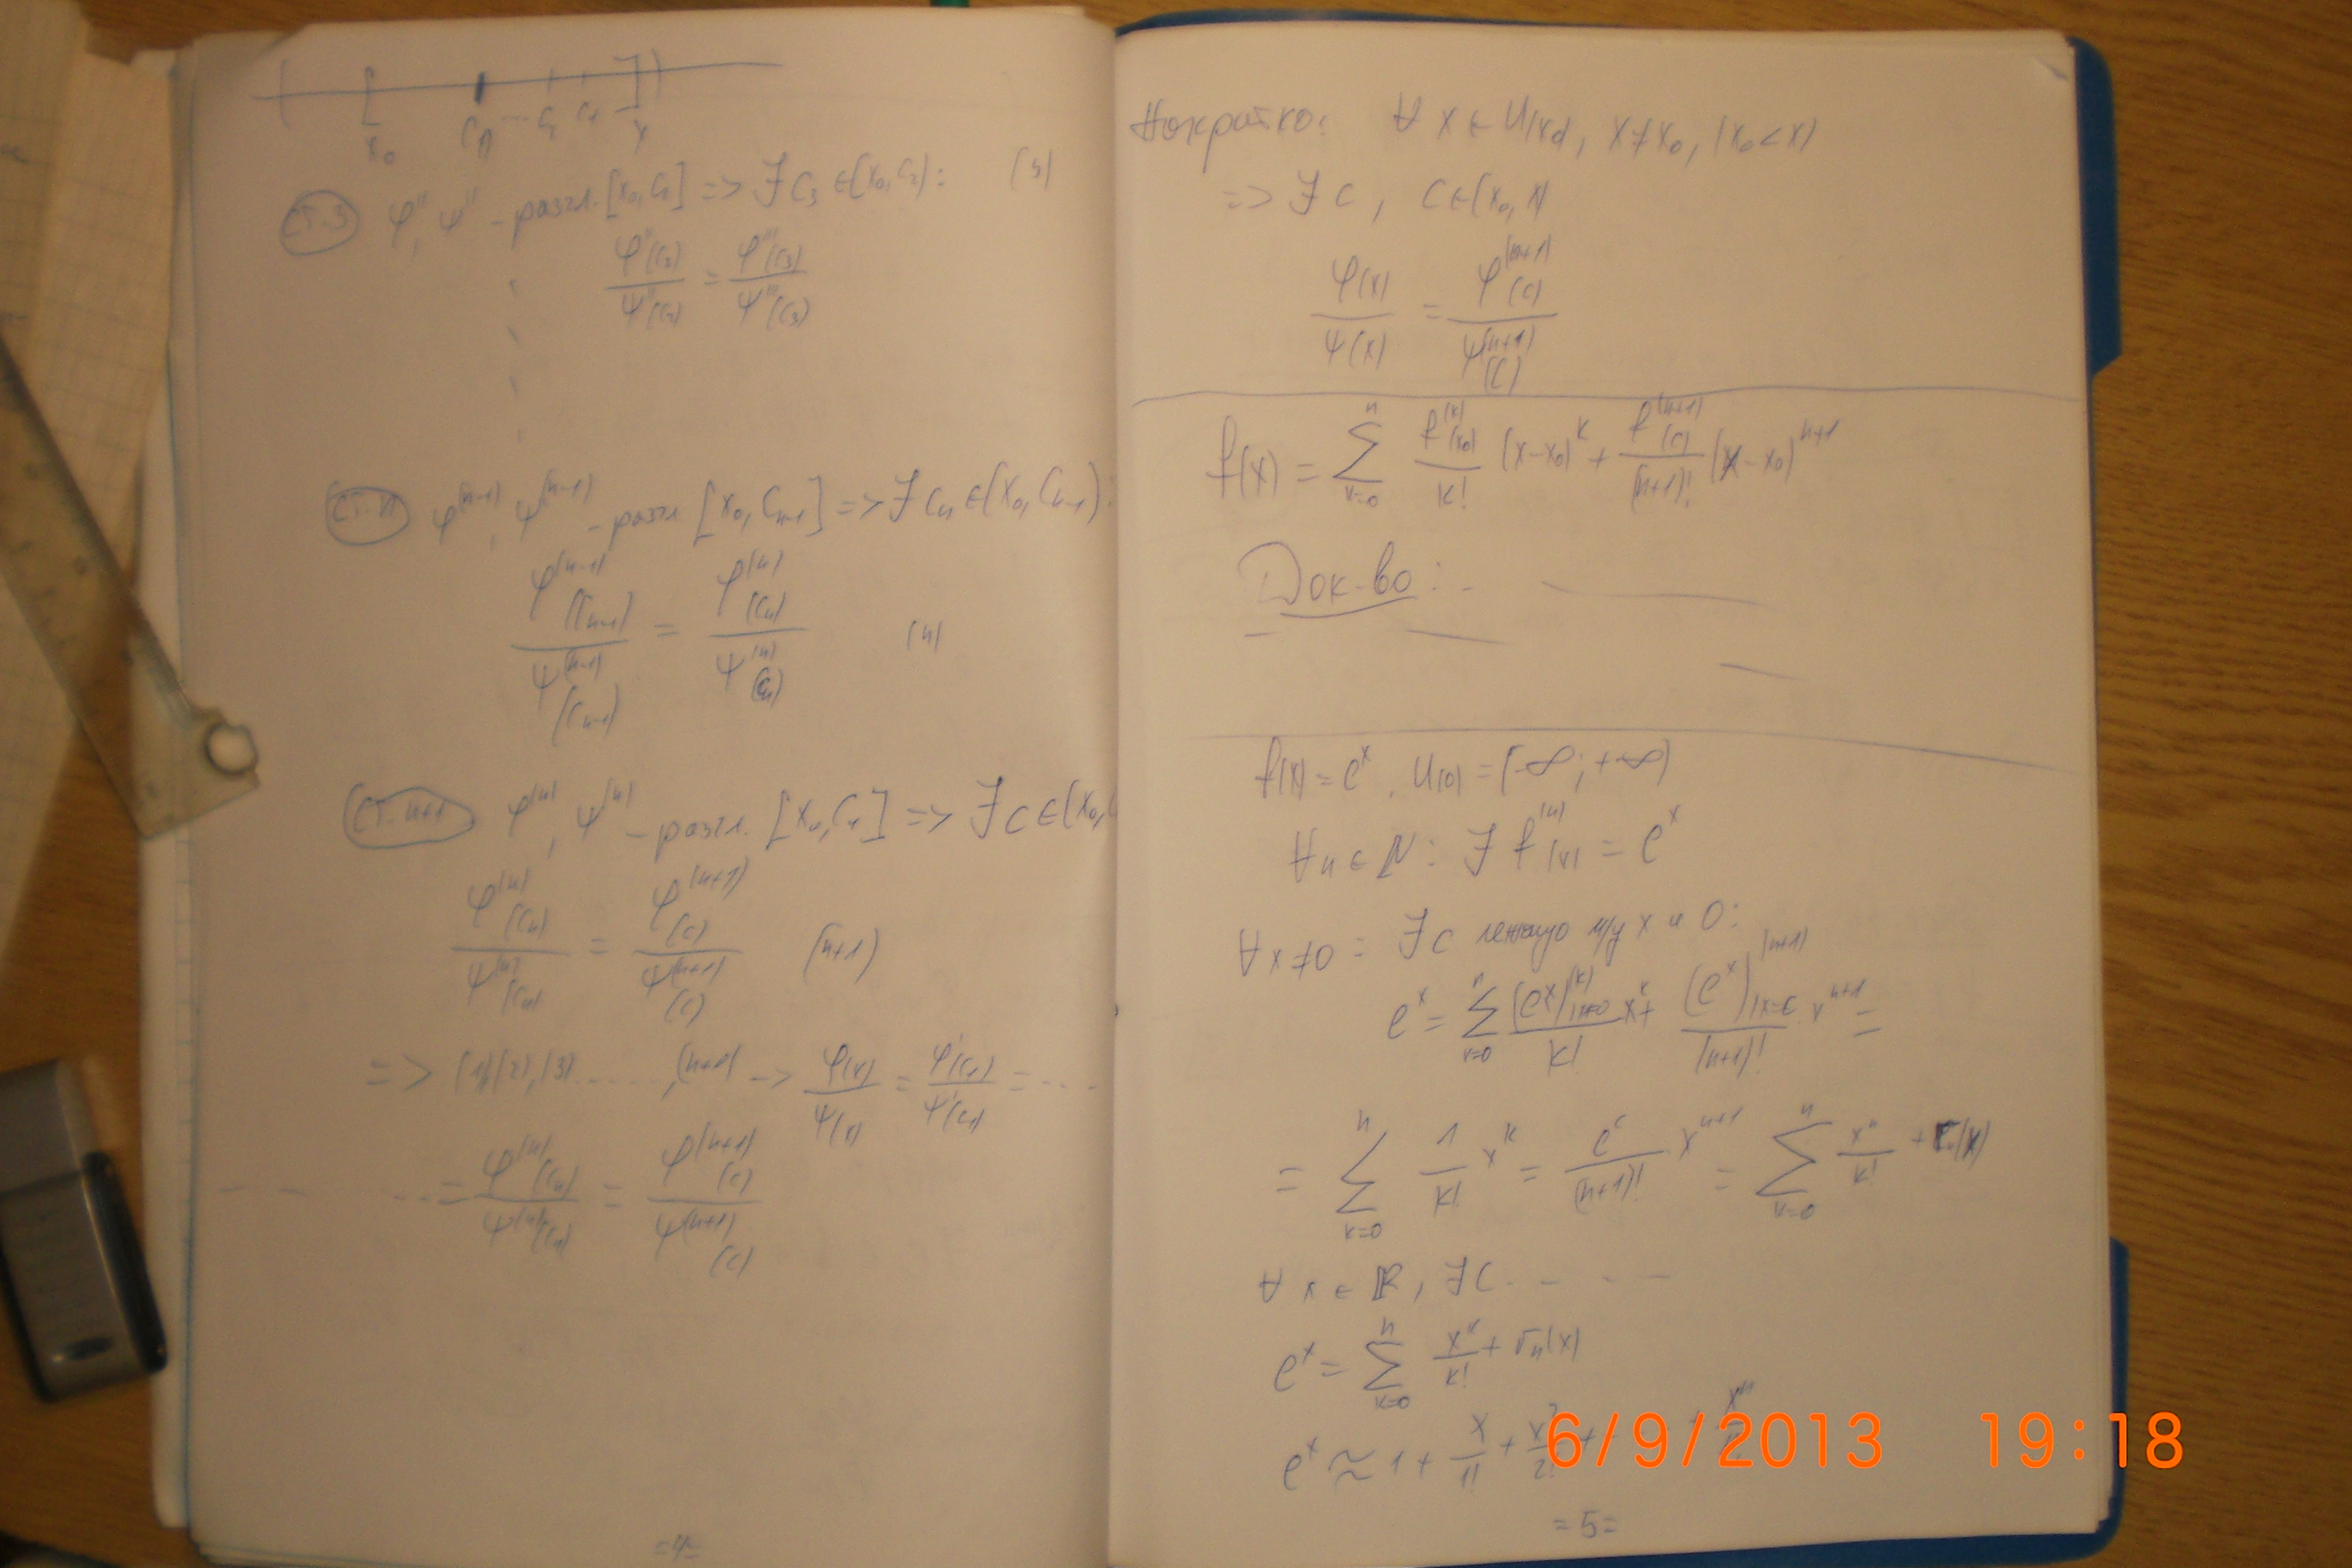 x₀ Cₙ ... C₂ C₁ x
Ст. 3 φ'', ψ'' – разгл. [x₀, C₂] => ∃ C₃ ∈ (x₀, C₂): (3)
φ''(C₂) / ψ''(C₂) = φ'''(C₃) / ψ'''(C₃)
Ст. n φ⁽ⁿ⁻¹⁾, ψ⁽ⁿ⁻¹⁾ – разгл. [x₀, Cₙ₋₁] => ∃ Cₙ ∈ (x₀, Cₙ₋₁):
φ⁽ⁿ⁻¹⁾(Cₙ₋₁) / ψ⁽ⁿ⁻¹⁾(Cₙ₋₁) = φ⁽ⁿ⁾(Cₙ) / ψ⁽ⁿ⁾(Cₙ) (n)
Ст. n+1 φ⁽ⁿ⁾, ψ⁽ⁿ⁾ – разгл. [x₀, Cₙ] => ∃ C ∈ (x₀, C
φ⁽ⁿ⁾(Cₙ) / ψ⁽ⁿ⁾(Cₙ) = φ⁽ⁿ⁺¹⁾(C) / ψ⁽ⁿ⁺¹⁾(C) (n+1)
=> (1), (2), (3) ......, (n+1) -> φ(x) / ψ(x) = φ'(C₁) / ψ'(C₁) = ...
... = φ⁽ⁿ⁾(Cₙ) / ψ⁽ⁿ⁾(Cₙ) = φ⁽ⁿ⁺¹⁾(C) / ψ⁽ⁿ⁺¹⁾(C)
=4=
Накратко: ∀ x ∈ U(x₀), x ≠ x₀, (x₀ < x)
=> ∃ C, C ∈ (x₀, x)
φ(x) / ψ(x) = φ⁽ⁿ⁺¹⁾(C) / ψ⁽ⁿ⁺¹⁾(C)
f(x) = ∑ₖ₌₀ⁿ f⁽ᵏ⁾(x₀)/k! (x-x₀)ᵏ + f⁽ⁿ⁺¹⁾(C)/(n+1)! (x-x₀)ⁿ⁺¹
Док-во:
f(x) = eˣ, U(0) = (-∞; +∞)
∀ n ∈ N: ∃ f⁽ⁿ⁾(x) = eˣ
∀ x ≠ 0 = ∃ C м/у x и 0:
eˣ = ∑ₖ₌₀ⁿ (eˣ)⁽ᵏ⁾|x=0 / k! xᵏ + (eˣ)⁽ⁿ⁺¹⁾|x=c / (n+1)! xⁿ⁺¹ =
= ∑ₖ₌₀ⁿ 1/k! xᵏ = eᶜ/(n+1)! xⁿ⁺¹ = ∑ₖ₌₀ⁿ xᵏ/k! + rₙ(x)
∀ x ∈ ℝ, ∃ C - - - -
eˣ = ∑ₖ₌₀ⁿ xᵏ/k! + rₙ(x)
eˣ ≈ 1 + x/1! + x²/2! + + xⁿ
6/9/2013 19:18
=5=